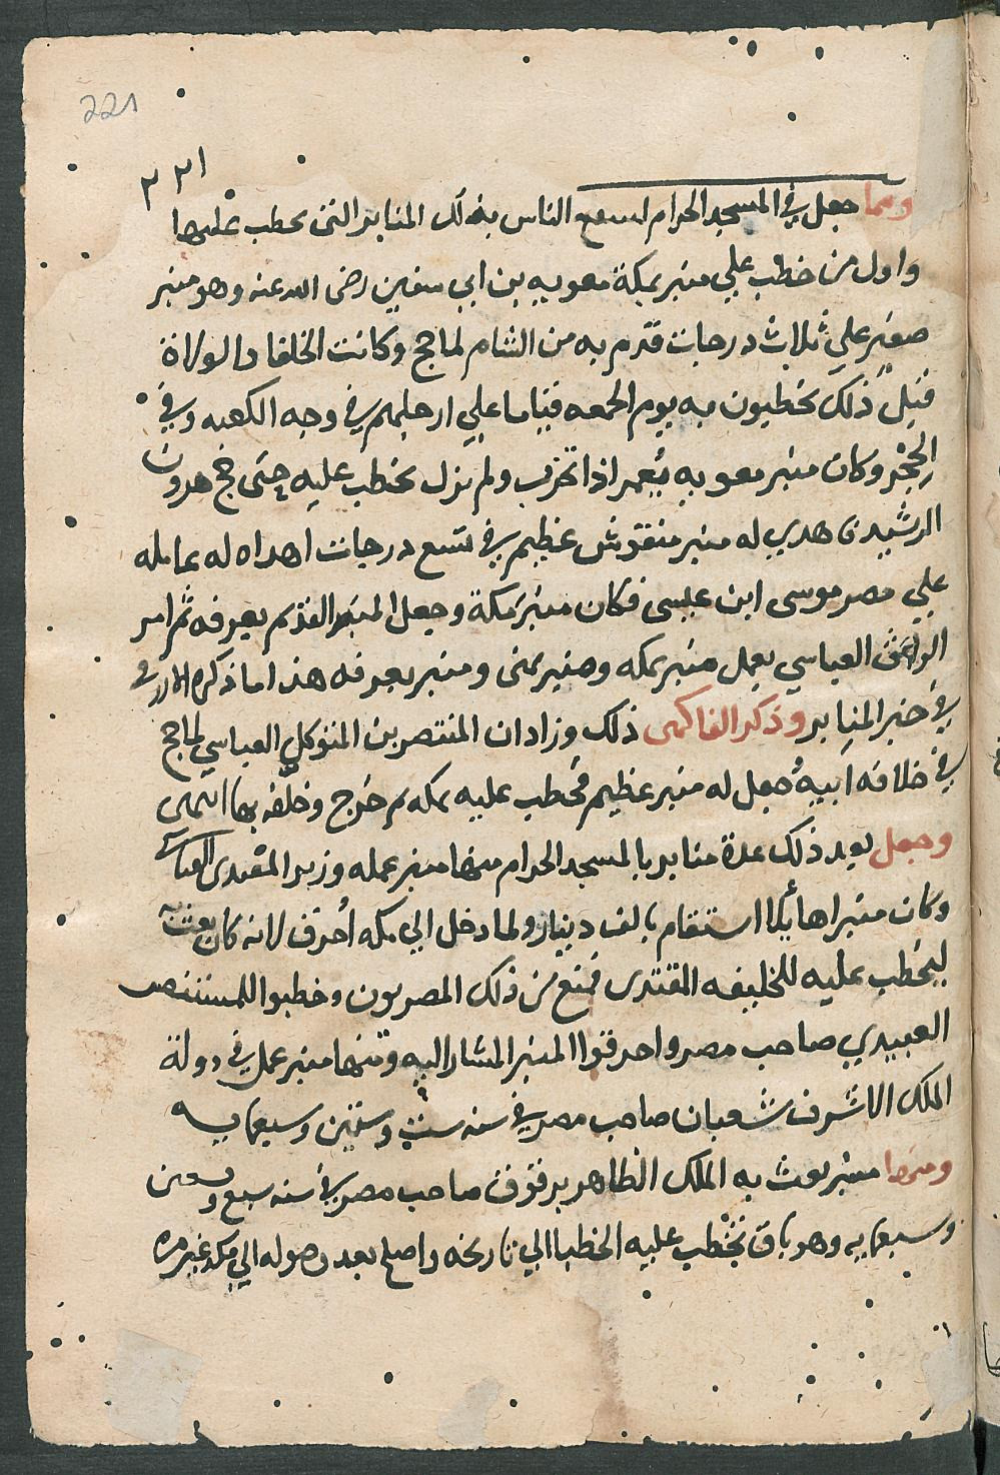 221
٢٢١
ومما جعل في المسجد الحرام لينتفع الناس بذلك المنابر التي يخطب عليها
واول من خطب علي منبر بمكة معويه بن ابي سفين رضى الله عنه وهو منبر
صغير علي ثلاث درجات قدم به من الشام لما حج وكانت الخلفا والولاة
قبل ذلك يخطبون به يوم الجمعه قياما علي ارجلهم في وجه الكعبه وفي
الحجر وكان منبر معويه يُعمر اذا تخرب ولم يزل يخطب عليه حتي حج هرون
الرشيد فاهدي له منبر منقوش عظيم في تسع درجات اهداه له عامله
علي مصر موسى ابن عيسى فكان منبر مكة وجعل المنبر القديم بعرفه ثم امر
الواثق العباسي بعمل منبر بمكه ومنبر بمنى ومنبر بعرفه هذا ما ذكره الازرقي
في خبر المنابر وذكر الفاكهى ذلك وزاد ان المنتصر بن المتوكل العباسي لما حج
في خلافه ابيه جعل له منبر عظيم فخطب عليه بمكه ثم خرج وخلفه بها انتهى
وجعل بعد ذلك عدة منابر بالمسجد الحرام منها منبر عمله وزير المقتدى العباسي
وكان منبرا هائلا استقام بالف دينار ولما دخل الي مكه اُحرق لانه كان بعث به
ليخطب عليه للخليفه المقتدى فمنع من ذلك المصريون وخطبوا للمستنصر
العبيدي صاحب مصر واحرقوا المنبر المشار اليه ومنها منبر عمل في دولة
الملك الاشرف شعبان صاحب مصر في سنه ست وستين وسبعمايه
ومنها منبر بعث به الملك الظاهر برقوق صاحب مصر في سنه سبع وتسعين
وسبعمايه وهو باق يخطب عليه الخطبا الي تاريخه واصلح بعد وصوله الي مكه غير مره